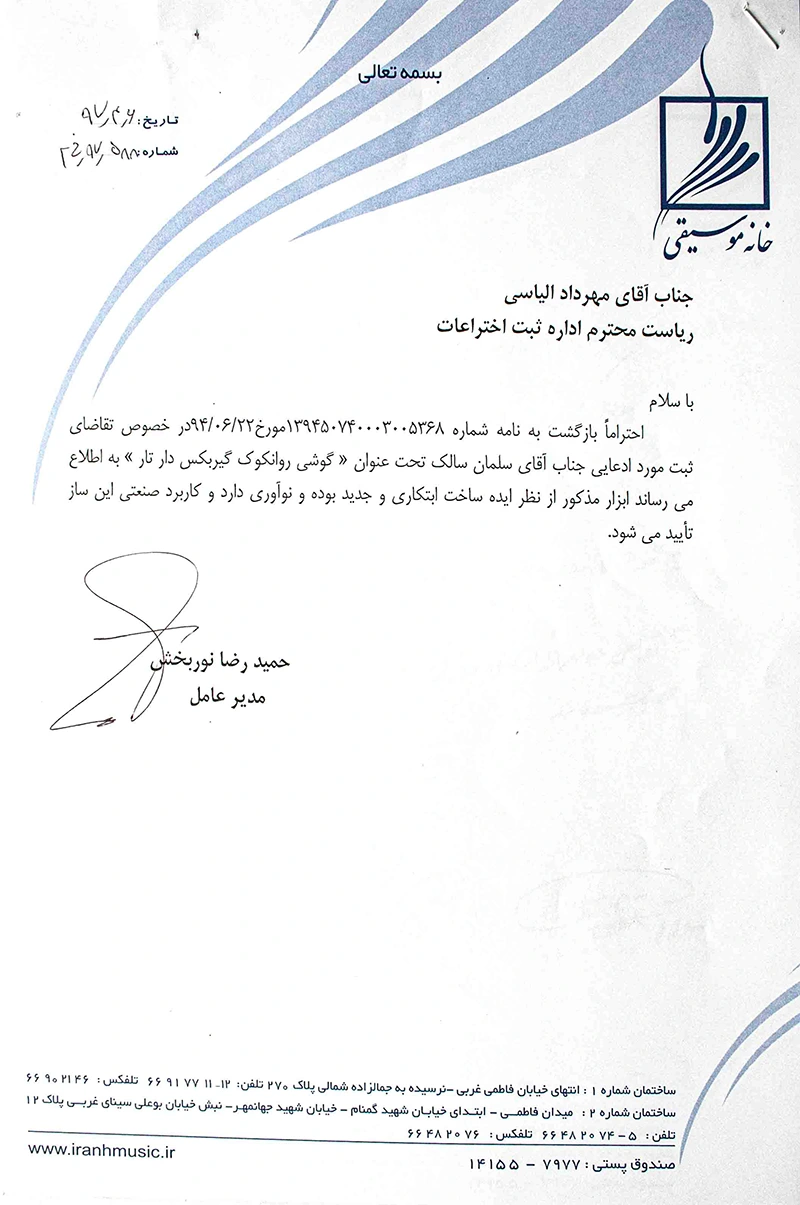 بسمه تعالی
تاریخ: ۹۷٫۴٫۶
شماره:
خانه موسیقی
جناب آقای مهرداد الیاسی
ریاست محترم اداره ثبت اختراعات
با سلام
احتراماً بازگشت به نامه شماره ۱۳۹۴۵۰۷۴۰۰۰۳۰۰۵۳۶۸مورخ۹۴/۰۶/۲۲در خصوص تقاضای
ثبت مورد ادعایی جناب آقای سلمان سالک تحت عنوان « گوشی روانکوک گیربکس دار تار » به اطلاع
می رساند ابزار مذکور از نظر ایده ساخت ابتکاری و جدید بوده و نوآوری دارد و کاربرد صنعتی این ساز
تأیید می شود.
حمید رضا نوربخش
مدیر عامل
ساختمان شماره ۱ : انتهای خیابان فاطمی غربی -نرسیده به جمالزاده شمالی پلاک ۲۷۰ تلفن: ۱۲-۱۱ ۷۷ ۹۱ ۶۶ تلفکس : ۴۶ ۲۱ ۹۰ ۶۶
ساختمان شماره ۲ : میدان فاطمـی - ابتـدای خیابـان شهید گمنام - خیابان شهید جهانمهر- نبش خیابان بوعلی سینای غربـی پلاک ۱۲
تلفن : ۵ - ۷۴ ۲۰ ۴۸ ۶۶ تلفکس : ۷۶ ۲۰ ۴۸ ۶۶
صندوق پستی : ۷۹۷۷ - ۱۴۱۵۵
www.iranhmusic.ir